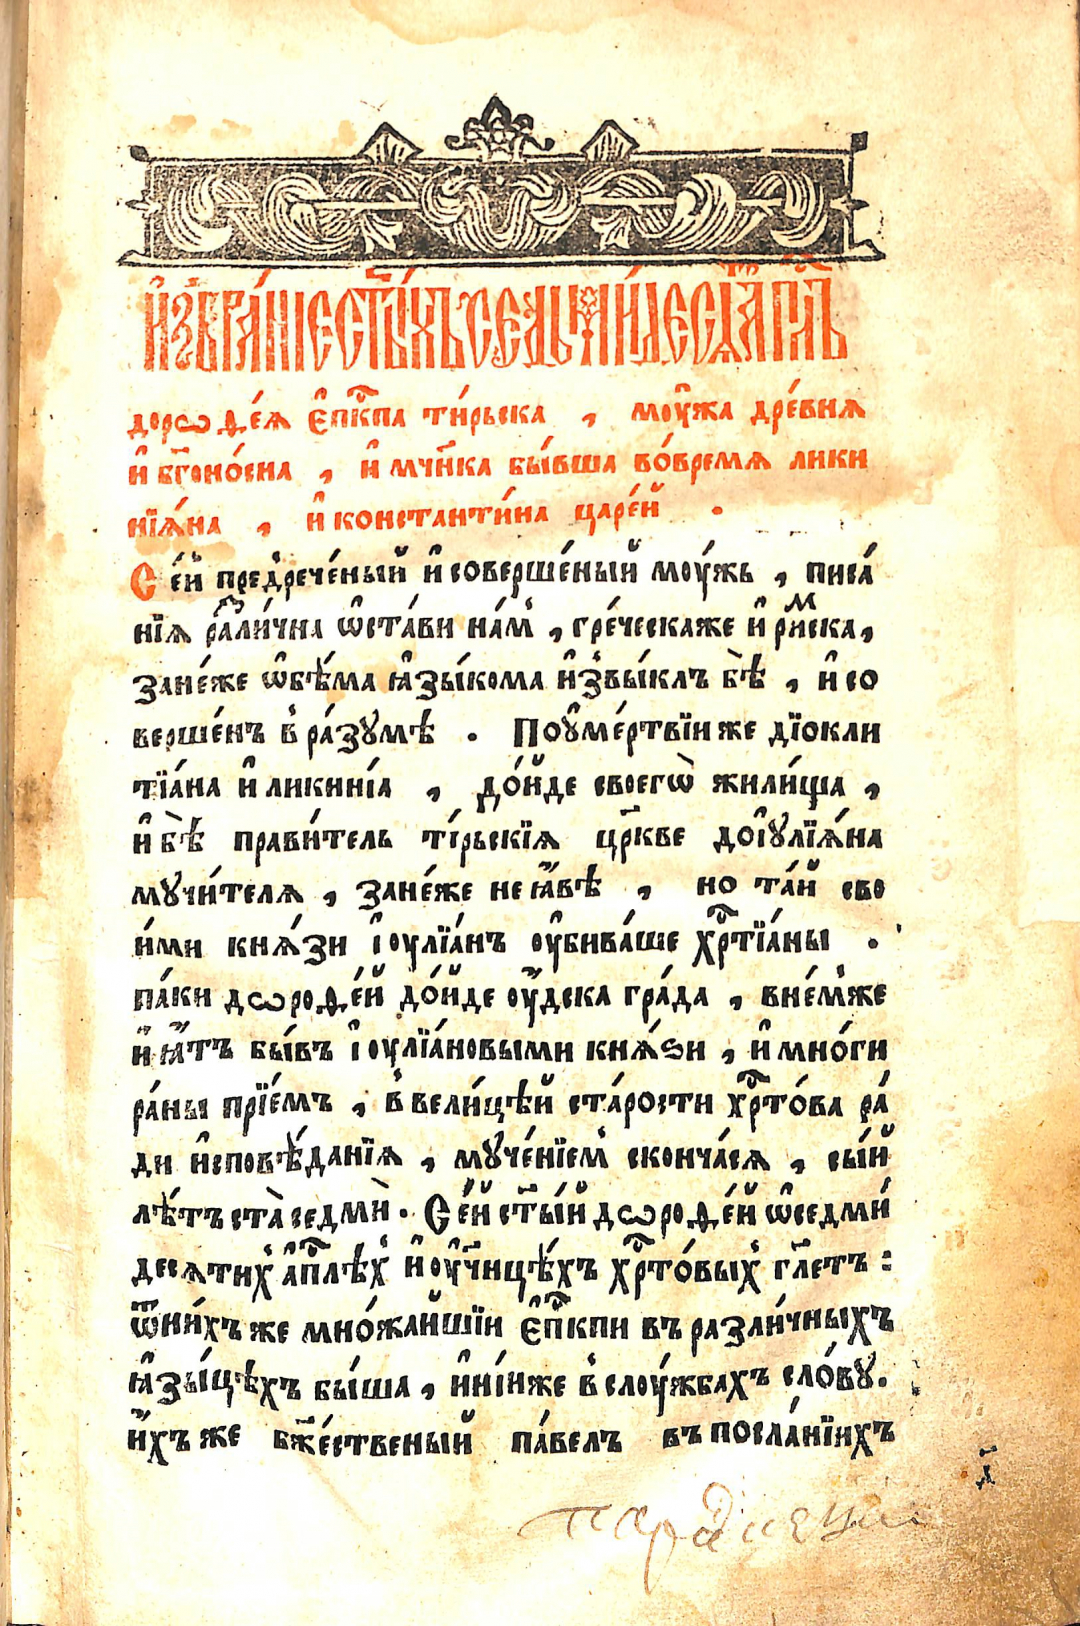 И҆збра́нїе ст҃ы́хъ седми́десѧт̾ а҆пⷭ҇лъ
дорѡѳе́ѧ є҆пⷭ҇кпа ти́рьска , мꙋ́жа дре́внѧ
и҆ бг҃оно́сна , и҆ мч҃нка бы́вша во́времѧ лики
нїѧ́на , и҆ константи́на царе́й .
Се́й пред̾рече́ный и҆ соверше́ный моу́жь , писа́
нїѧ раⷥли́чна ѡ҆ста́ви на́м̾ , гре́ческаже и҆ риⷨска ,
зане́же ѡ҆бѣ́ма ꙗ҆зы́кома и҆звы́клъ бѣ̀ , и҆ со
верше́нъ в̾ ра́зꙋмѣ . Поу҆ме́ртвїи же дїокли
тїа́на и҆ ликинїа , до́йде своегѡ̀ жили́ща ,
и҆ бѣ̀ прави́тель ти́рьскїѧ цр҃кве доі҆ꙋлїѧ́на
мꙋчи́телѧ , зане́же не ꙗ҆́вѣ , но та́й сво
и́ми кнѧ́зи і҆оулїа́нъ оу҆бива́ше хрⷭ҇тїа́ны .
па́ки дѡроѳе́й до́йде оу҆́дска гра́да , в не́м̾же
и҆ ꙗ҆́тъ бы́въ і҆оулїа́новыми кнѧ́ѕи , и҆ мно́ги
ра́ны прїе́мъ , в̾ вели́цѣй ста́рости хрⷭ҇то́ва ра́
ди и҆сповѣ́данїѧ , мꙋче́нїем̾ сконча́сѧ , сы́й
лѣ́тъ ста̀ седмѝ . Се́й ст҃ы́й дѡроѳе́й ѡ҆ седми́
десѧтих̾ а҆пⷭ҇лѣх̾ и҆ оу҆чн҃цѣ́хъ хрⷭ҇то́вых̾ гл҃етъ :
ѿ ни́хъ же мно́жайшїи є҆пⷭ҇кпи въ разли́чныхъ
ꙗ҆зы́цѣхъ бы́ша , и҆нїи же в̾ слоу́жбахъ сло́вꙋ .
и҆́хъ же бж҃е́ственый па́велъ въ посла́нїихъ